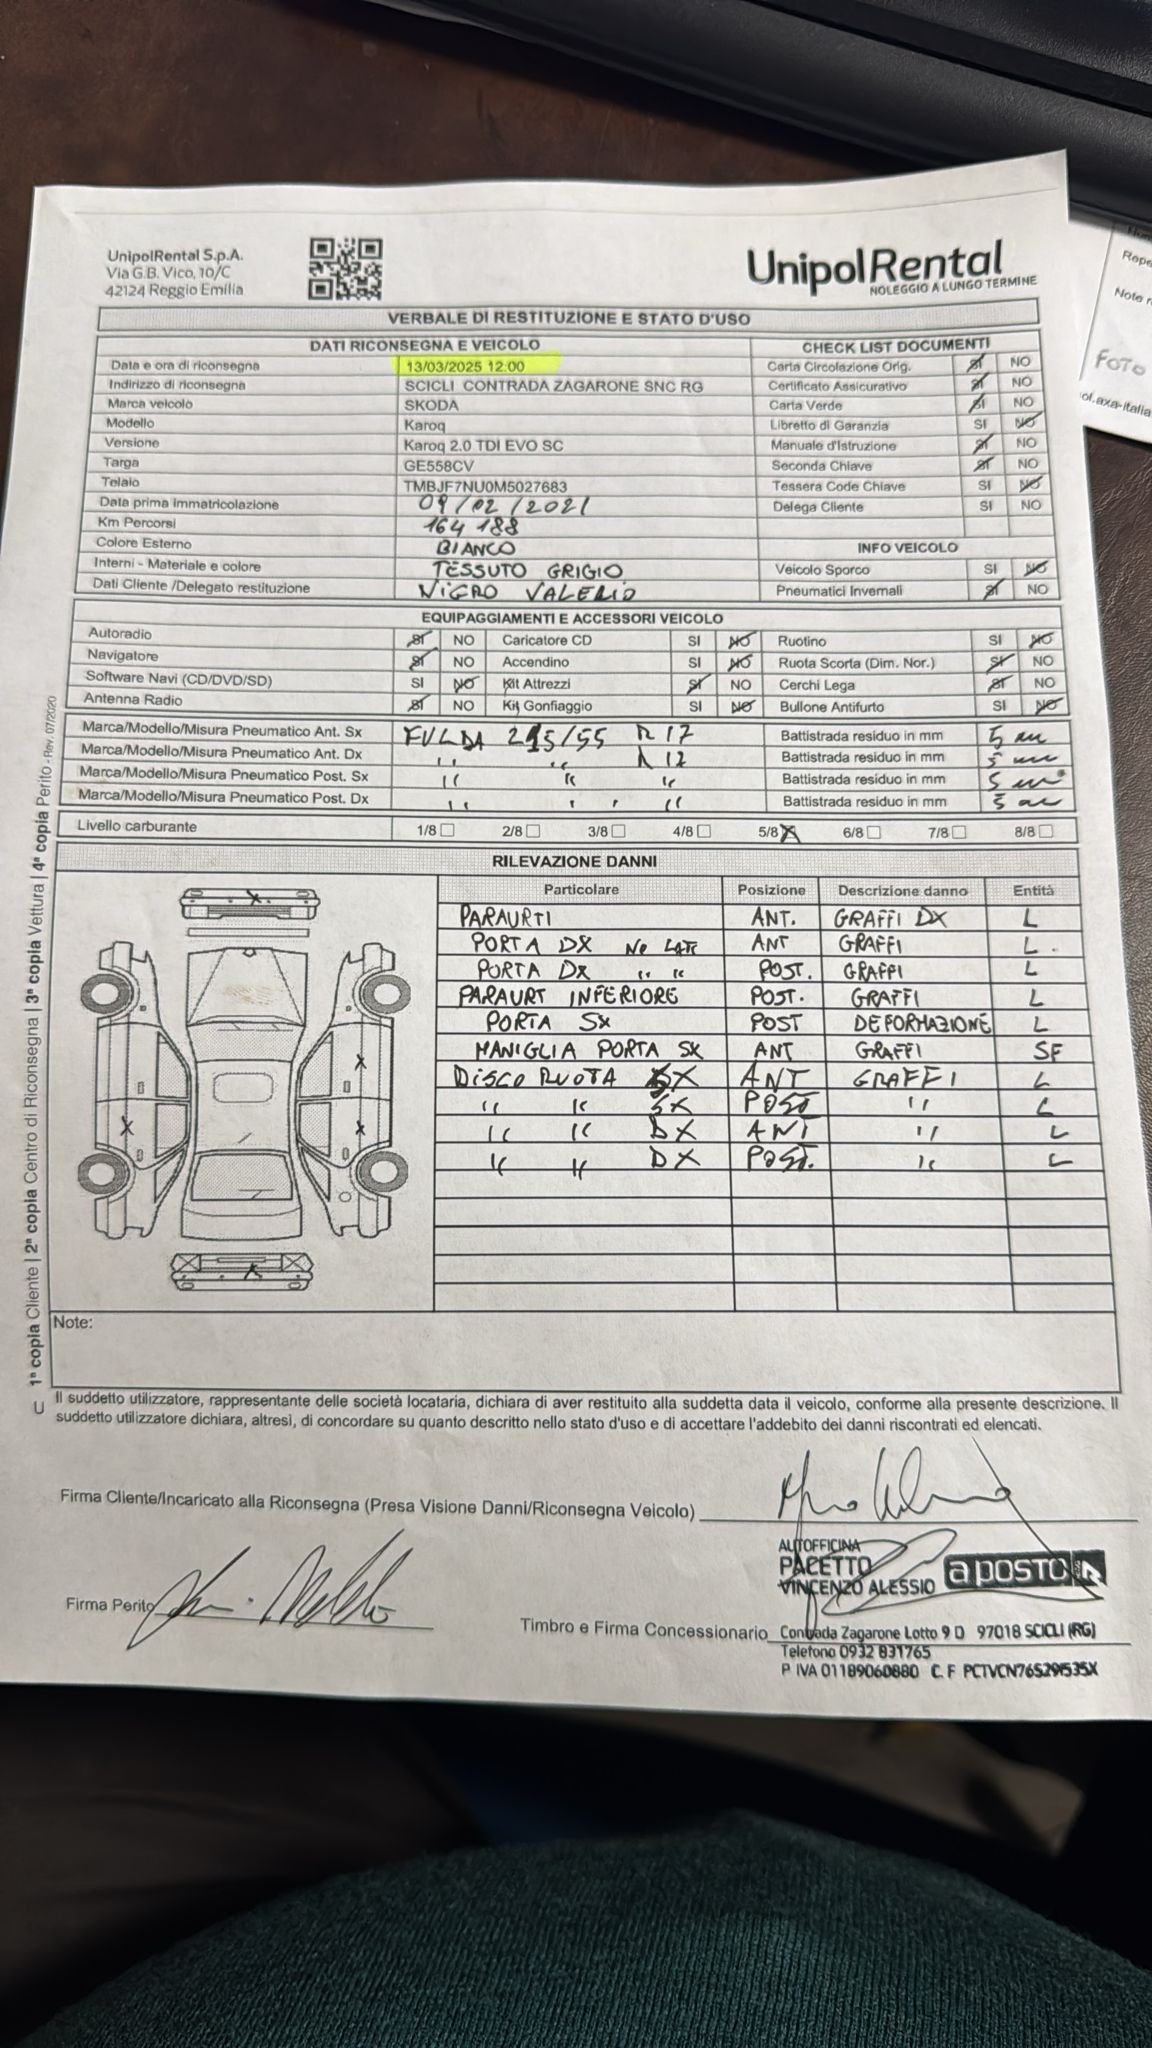 UnipolRental S.p.A.
Via G.B. Vico, 10/C
42124 Reggio Emilia
UnipolRental
NOLEGGIO A LUNGO TERMINE
VERBALE DI RESTITUZIONE E STATO D'USO
DATI RICONSEGNA E VEICOLO
Data e ora di riconsegna 13/03/2025 12:00
Indirizzo di riconsegna SCICLI CONTRADA ZAGARONE SNC RG
Marca veicolo SKODA
Modello Karoq
Versione Karoq 2.0 TDI EVO SC
Targa GE558CV
Telaio TMBJF7NU0M5027683
Data prima immatricolazione 09/02/2021
Km Percorsi 164 188
Colore Esterno BIANCO
Interni - Materiale e colore TESSUTO GRIGIO
Dati Cliente /Delegato restituzione NIGRO VALERIO
CHECK LIST DOCUMENTI
Carta Circolazione Orig. SI NO
Certificato Assicurativo SI NO
Carta Verde SI NO
Libretto di Garanzia SI NO
Manuale d'Istruzione SI NO
Seconda Chiave SI NO
Tessera Code Chiave SI NO
Delega Cliente SI NO
INFO VEICOLO
Veicolo Sporco SI NO
Pneumatici Invernali SI NO
EQUIPAGGIAMENTI E ACCESSORI VEICOLO
Autoradio SI NO Caricatore CD SI NO Ruotino SI NO
Navigatore SI NO Accendino SI NO Ruota Scorta (Dim. Nor.) SI NO
Software Navi (CD/DVD/SD) SI NO Kit Attrezzi SI NO Cerchi Lega SI NO
Antenna Radio SI NO Kit Gonfiaggio SI NO Bullone Antifurto SI NO
Marca/Modello/Misura Pneumatico Ant. Sx FULDA 215/55 R 17 Battistrada residuo in mm 5
Marca/Modello/Misura Pneumatico Ant. Dx " " R 17 Battistrada residuo in mm 5
Marca/Modello/Misura Pneumatico Post. Sx " " " Battistrada residuo in mm 5
Marca/Modello/Misura Pneumatico Post. Dx " " " Battistrada residuo in mm 5
Livello carburante 1/8 2/8 3/8 4/8 5/8 6/8 7/8 8/8
RILEVAZIONE DANNI
Particolare Posizione Descrizione danno Entità
PARAURTI ANT. GRAFFI DX L
PORTA DX ANT GRAFFI L.
PORTA DX " " POST. GRAFFI L
PARAURT INFERIORE POST. GRAFFI L
PORTA SX POST DEFORMAZIONE L
MANIGLIA PORTA SX ANT GRAFFI SF
DISCO RUOTA SX ANT GRAFFI L
" " SX POST " L
" " DX ANT " L
" " DX POST. " L
Note:
1ª copia Cliente | 2ª copia Centro di Riconsegna | 3ª copia Vettura | 4ª copia Perito - Rev. 07/2020
U
Il suddetto utilizzatore, rappresentante delle società locataria, dichiara di aver restituito alla suddetta data il veicolo, conforme alla presente descrizione. Il
suddetto utilizzatore dichiara, altresì, di concordare su quanto descritto nello stato d'uso e di accettare l'addebito dei danni riscontrati ed elencati.
Firma Cliente/Incaricato alla Riconsegna (Presa Visione Danni/Riconsegna Veicolo)
Firma Perito
Timbro e Firma Concessionario
AUTOFFICINA
PACETTO
VINCENZO ALESSIO
a posto
Contrada Zagarone Lotto 9 D 97018 SCICLI (RG)
Telefono 0932 831765
P IVA 01189060880 C. F PCTVCN76S29I535X
Note
FOTO